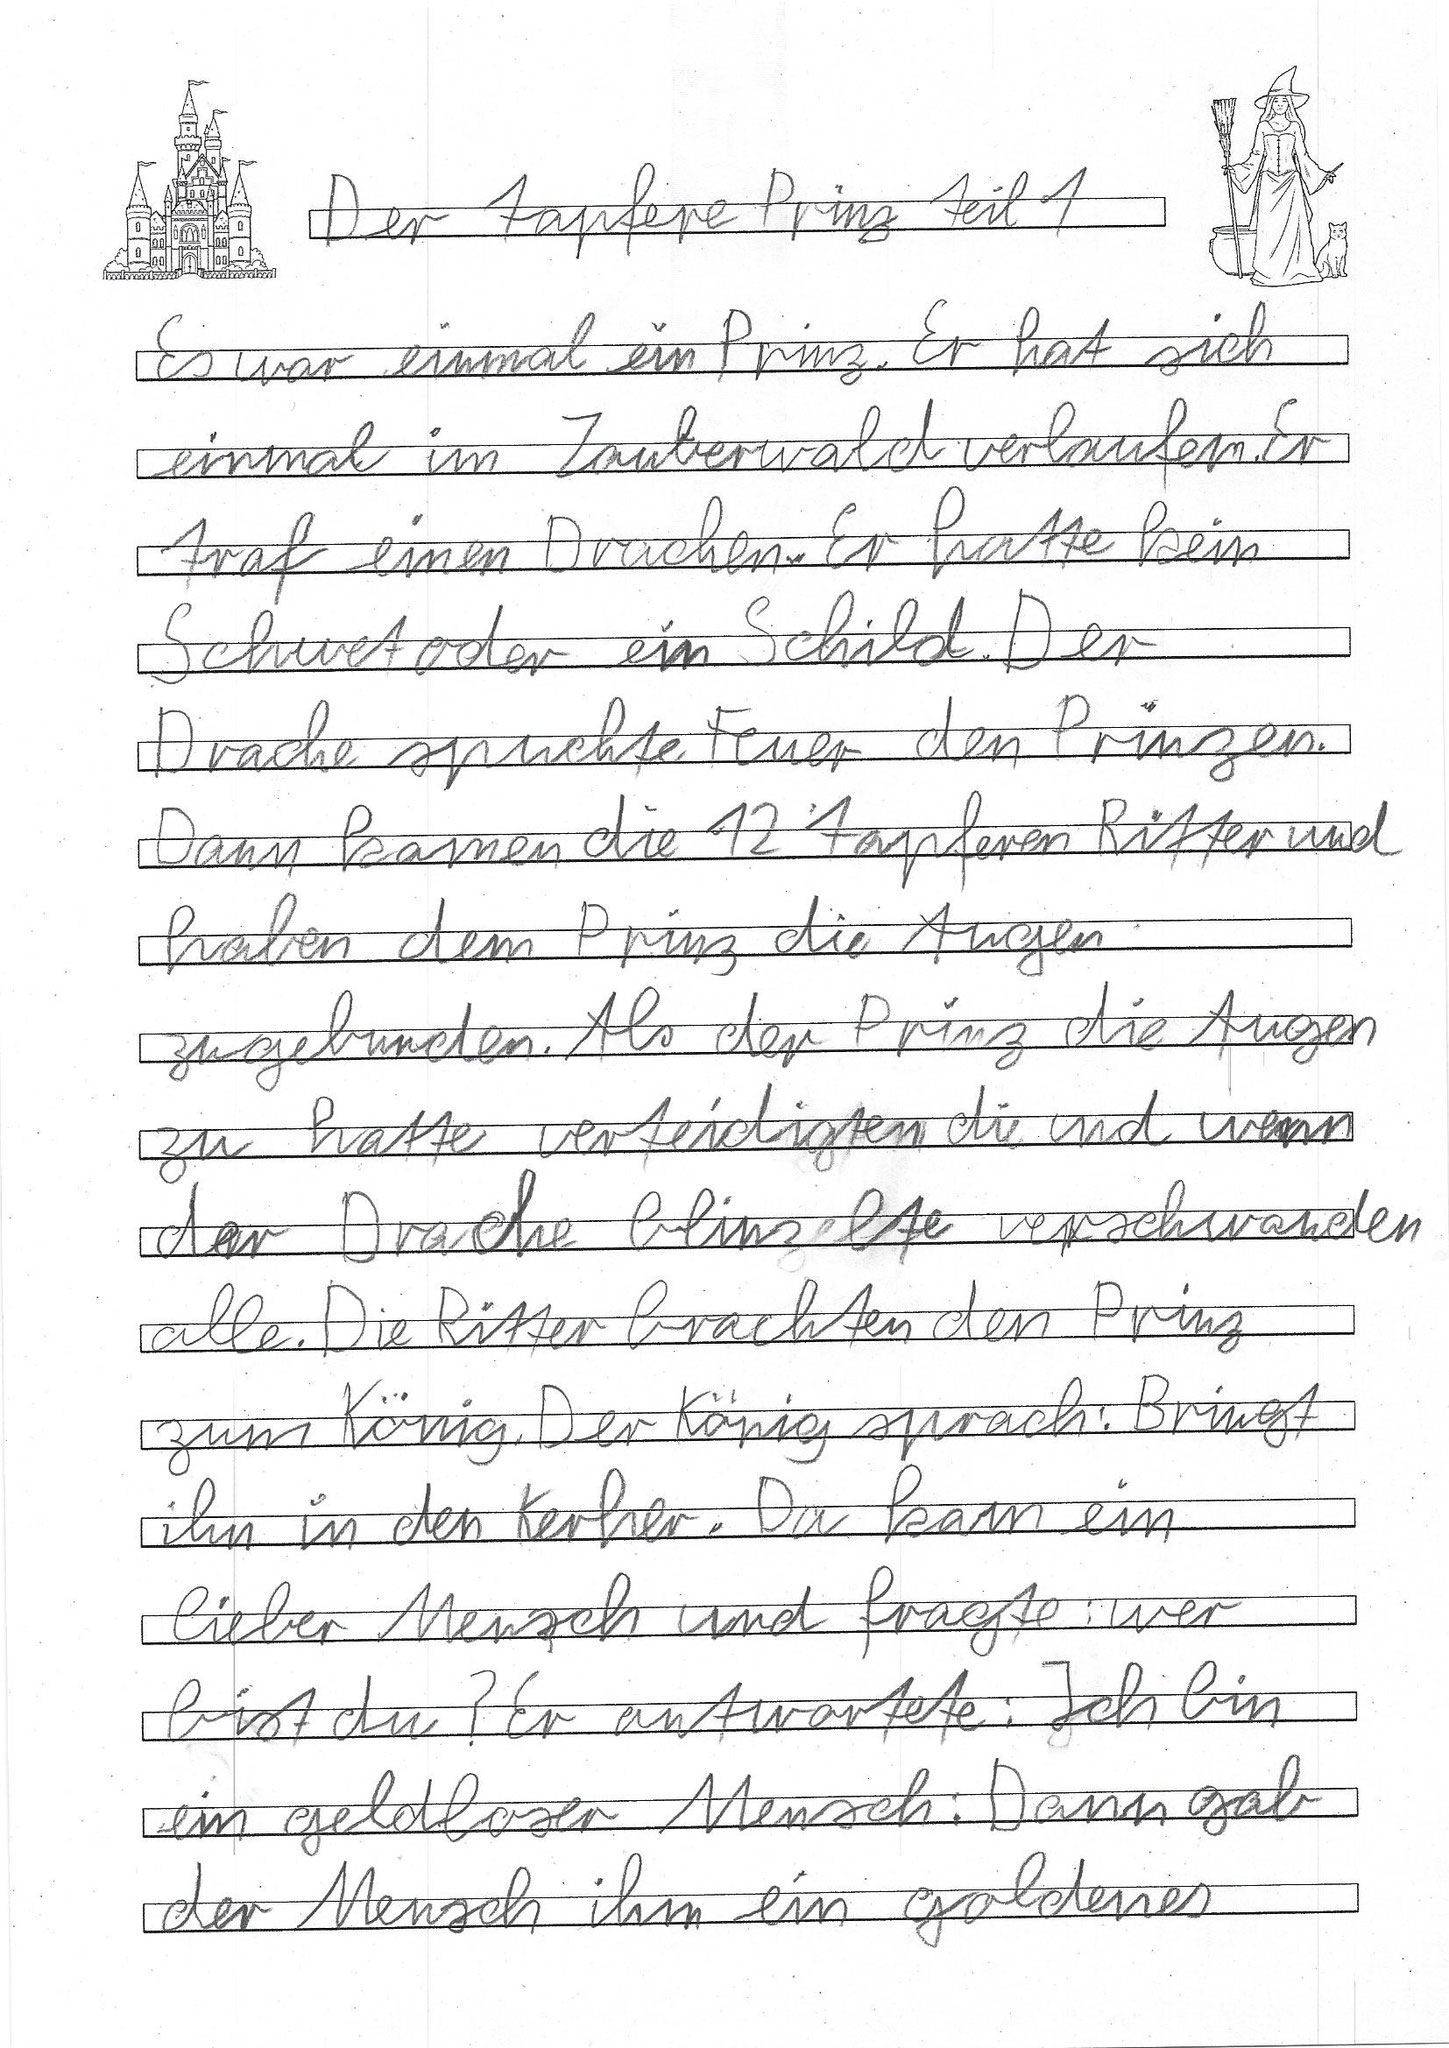 Der tapfere Prinz teil 1
Es war einmal ein Prinz. Er hat sich
einmal im Zauberwald verlaufen. Er
traf einen Drachen. Er hatte kein
Schwet oder ein Schild. Der
Drache spuchte Feuer den Prinzen.
Dann kamen die 12 tapferen Ritter und
haben dem Prinz die Augen
zugebunden. Als der Prinz die Augen
zu hatte verteidigten die und wenn
der Drache blinzelte verschwanden
alle. Die Ritter brachten den Prinz
zum König. Der König sprach: Bringt
ihn in den Kerker. Da kam ein
lieber Mensch und fragte: wer
bist du? Er antwortete: Ich bin
ein geldloser Mensch: Dann gab
der Mensch ihm ein goldenes